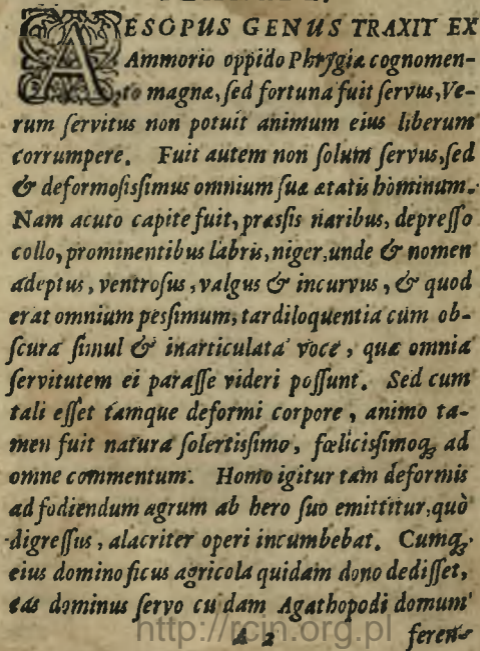 AESOPUS GENUS TRAXIT EX
Ammorio oppido Phrygiæ cognomen-
to magnæ, sed fortuna fuit servus, Ve-
rum servitus non potuit animum eius liberum
corrumpere. Fuit autem non solum servus, sed
& deformosissimus omnium suæ ætatis hominum.
Nam acuto capite fuit, præssis naribus, depresso
collo, prominentibus labris, niger, unde & nomen
adeptus, ventrosus, valgus & incurvus, & quod
erat omnium pessimum, tardiloquentia cum ob-
scura simul & inarticulata voce, quæ omnia
servitutem ei parasse videri possunt. Sed cum
tali esset tamque deformi corpore, animo ta-
men fuit natura solertissimo, fœlicissimoq; ad
omne commentum. Homo igitur tam deformis
ad fodiendum agrum ab hero suo emittitur, quò
digressus, alacriter operi incumbebat. Cumq;
eius domino ficus agricola quidam dono dedisset,
eas dominus servo cuidam Agathopodi domum
http://rcin.org.pl
A 2 feren-